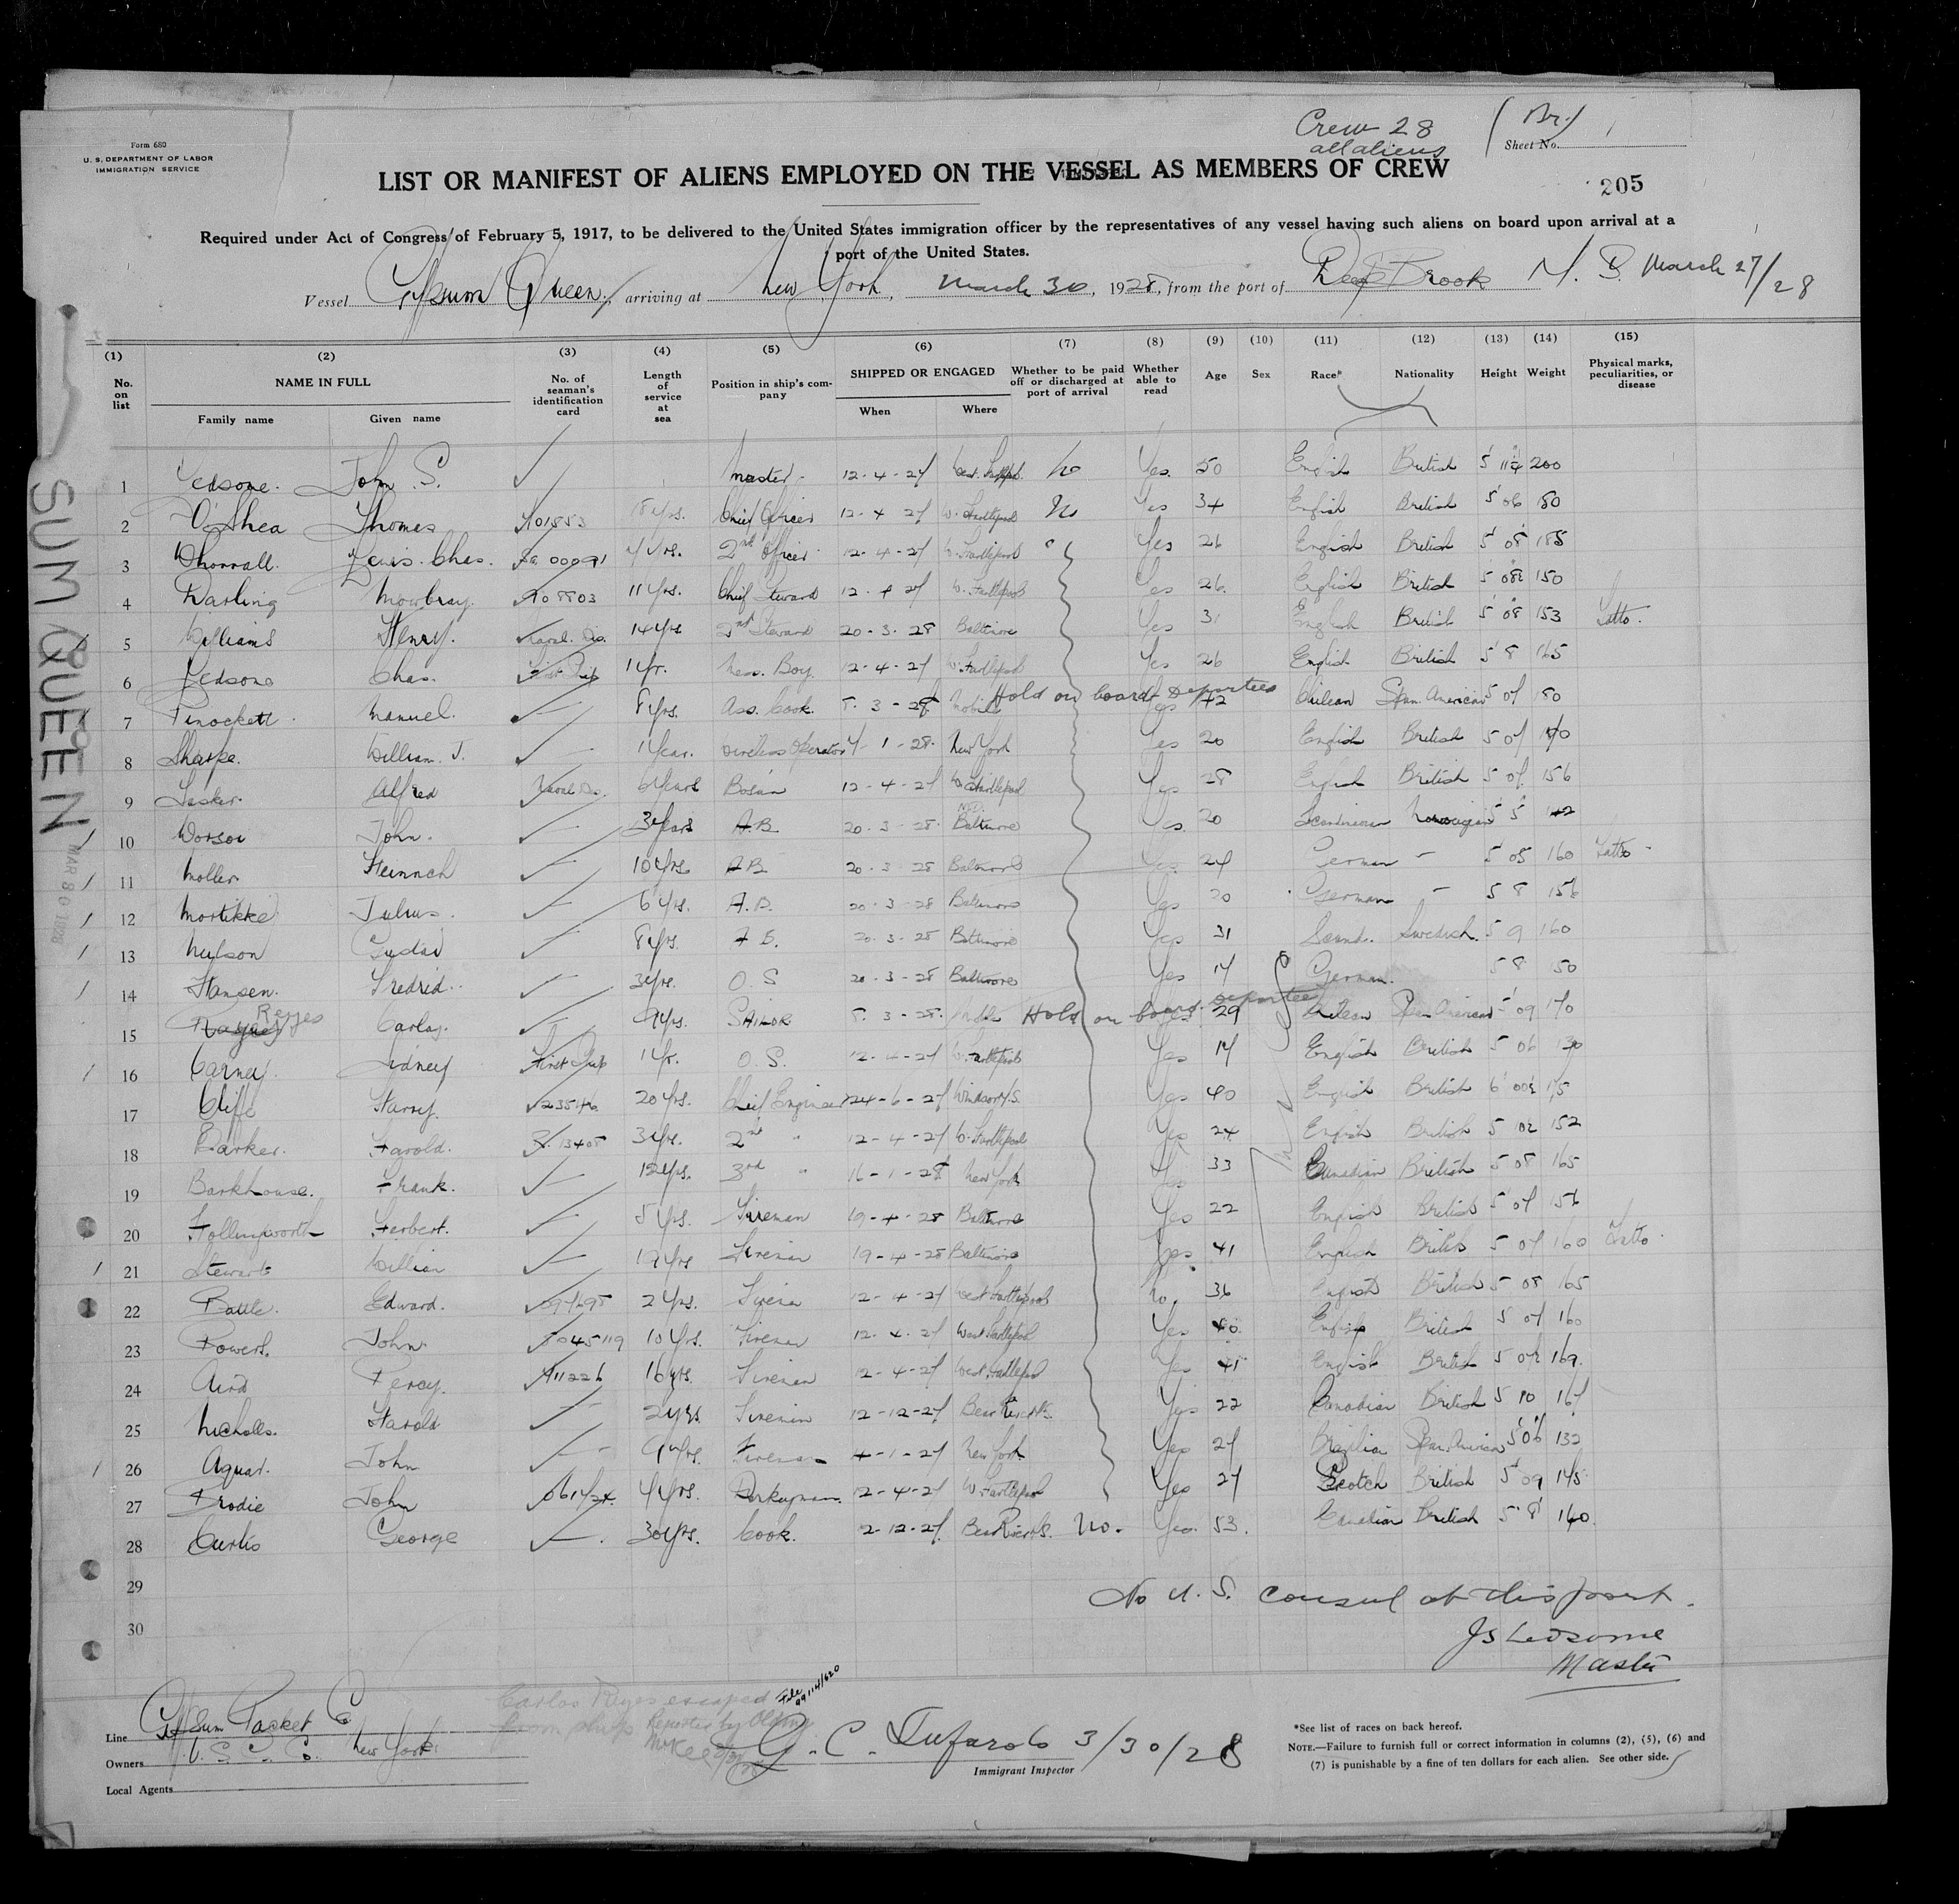 Crew 28
all aliens
(Br.) 1
Form 680
U. S. DEPARTMENT OF LABOR
IMMIGRATION SERVICE
Sheet No.
LIST OR MANIFEST OF ALIENS EMPLOYED ON THE VESSEL AS MEMBERS OF CREW
205
Required under Act of Congress of February 5, 1917, to be delivered to the United States immigration officer by the representatives of any vessel having such aliens on board upon arrival at a
port of the United States.
Vessel Gypsum Queen, arriving at New York, March 30, 1928, from the port of Deep Brook N. S. March 27/28
(1) (2) (3) (4) (5) (6) (7) (8) (9) (10) (11) (12) (13) (14) (15)
No. on list NAME IN FULL No. of seaman's identification card Length of service at sea Position in ship's company SHIPPED OR ENGAGED Whether to be paid off or discharged at port of arrival Whether able to read Age Sex Race* Nationality Height Weight Physical marks, peculiarities, or disease
Family name Given name When Where
1 Ledsome. John S. Master 12-4-27 No Yes. 50 English British 200
2 O'Shea Thomas 18 yrs. Chief Officer 12-4-27 W. Hartlepool No Yes 34 English British 5 06 180
3 Lewis Chas. 2nd Officer 12-4-27 W. Hartlepool Yes 26 English British 5 08 185
4 Darling Mowbray. 11 yrs. Chief Steward 12-4-27 W. Hartlepool Yes 26 English British 150
5 Williams Henry. Naval Dis. 14 yrs 2nd Steward 20-3-28 Baltimore Yes 31 English British 5 08 153 Tatto.
6 Ledsome Chas. First Trip 1 yr. Mess. Boy 12-4-27 W. Hartlepool Yes 26 English British 5 8 165
7 Pinockett Manuel. 8 yrs. Ass. Cook. 8-3-28 Mobile Hold on board Deportees Yes 42 Chilean Span. American 5 07 180
8 Sharpe. William J. 1 Year. Wireless Operator 7-1-28 New York Yes 20 English British 5 07
9 Alfred Naval Dis. 6 Years Bosun 12-4-27 W. Hartlepool Yes 28 English British 5 07 156
10 John. 3 years A.B. 20-3-28 Baltimore Yes. 20 Scandinavian Norwegian 5 5 142
11 Moller Heinrich 10 yrs. AB 20-3-28 Baltimore Yes 24 German - 5 05 160 Tatto
12 Julius. 6 yrs. A.B. 20-3-28 Baltimore Yes 20 German - 5 8 156
13 Nelson 8 yrs. A B. 20-3-28 Baltimore Yes 31 Scand. Swedish. 5 9 160
14 Hansen. 3 yrs. O. S 20-3-28 Baltimore Yes 17 German. 5 8 150
15 Reyes Carlos. 9 yrs. SAILOR 8-3-28 Mobile Hold on board Deportee Yes 29 Chilean Span American 5 09 170
16 Carney. Sidney First Trip 1 yr. O. S. 12-4-27 W. Hartlepool Yes 17 English British 5 06 130
17 Cliffe Harry. 20 yrs. Chief Engineer 24-6-27 Windsor N.S. Yes 40 English British 175
18 Barker. Harold. 3 yrs. 2nd " 12-4-27 W. Hartlepool Yes 24 English British 152
19 Barkhouse. Frank. 12 yrs. 3rd " 16-1-28 New York Yes 33 Canadian British 5 08 165
20 Hollingworth Herbert. 5 yrs. Fireman 19-4-28 Baltimore Yes 22 English British 5 07 156
21 Stewart William 17 yrs Fireman 19-4-28 Baltimore Yes 41 English British 5 07 160 Tatto
22 Battle. Edward. 2 yrs. Fireman 12-4-27 West Hartlepool No. 36 English British 5 08 165
23 Powers. John 1045119 10 yrs. Fireman 12-4-27 West Hartlepool Yes 40 English British 5 07 160
24 Aird Percy. 16 yrs. Fireman 12-4-27 West Hartlepool Yes 41 English British 169.
25 Nicholls. Harold 2 yrs Fireman 12-12-27 Bear River N.S. Yes 22 Canadian British 5 10 167
26 Aguar. John 9 yrs. Fireman 4-1-27 New York Yes 27 Brazilian Span. American 5 06 132
27 Brodie John 4 yrs. Donkeyman. 12-4-27 W. Hartlepool Yes 27 Scotch British 5 09 145
28 Curtis George 30 yrs. Cook. 2-12-27 Bear River N.S. No. Yes. 53. Canadian British 5 8 140
29
30
No U. S. Consul at this port.
JS Ledsome
Master
SUM QUEEN
Line Gypsum Packet Co
Owners New York
Local Agents
Carlos Reyes escaped
from ship
File 99114/620
G. C. Tufarolo 3/30/28
Immigrant Inspector
*See list of races on back hereof.
NOTE.—Failure to furnish full or correct information in columns (2), (5), (6) and
(7) is punishable by a fine of ten dollars for each alien. See other side.